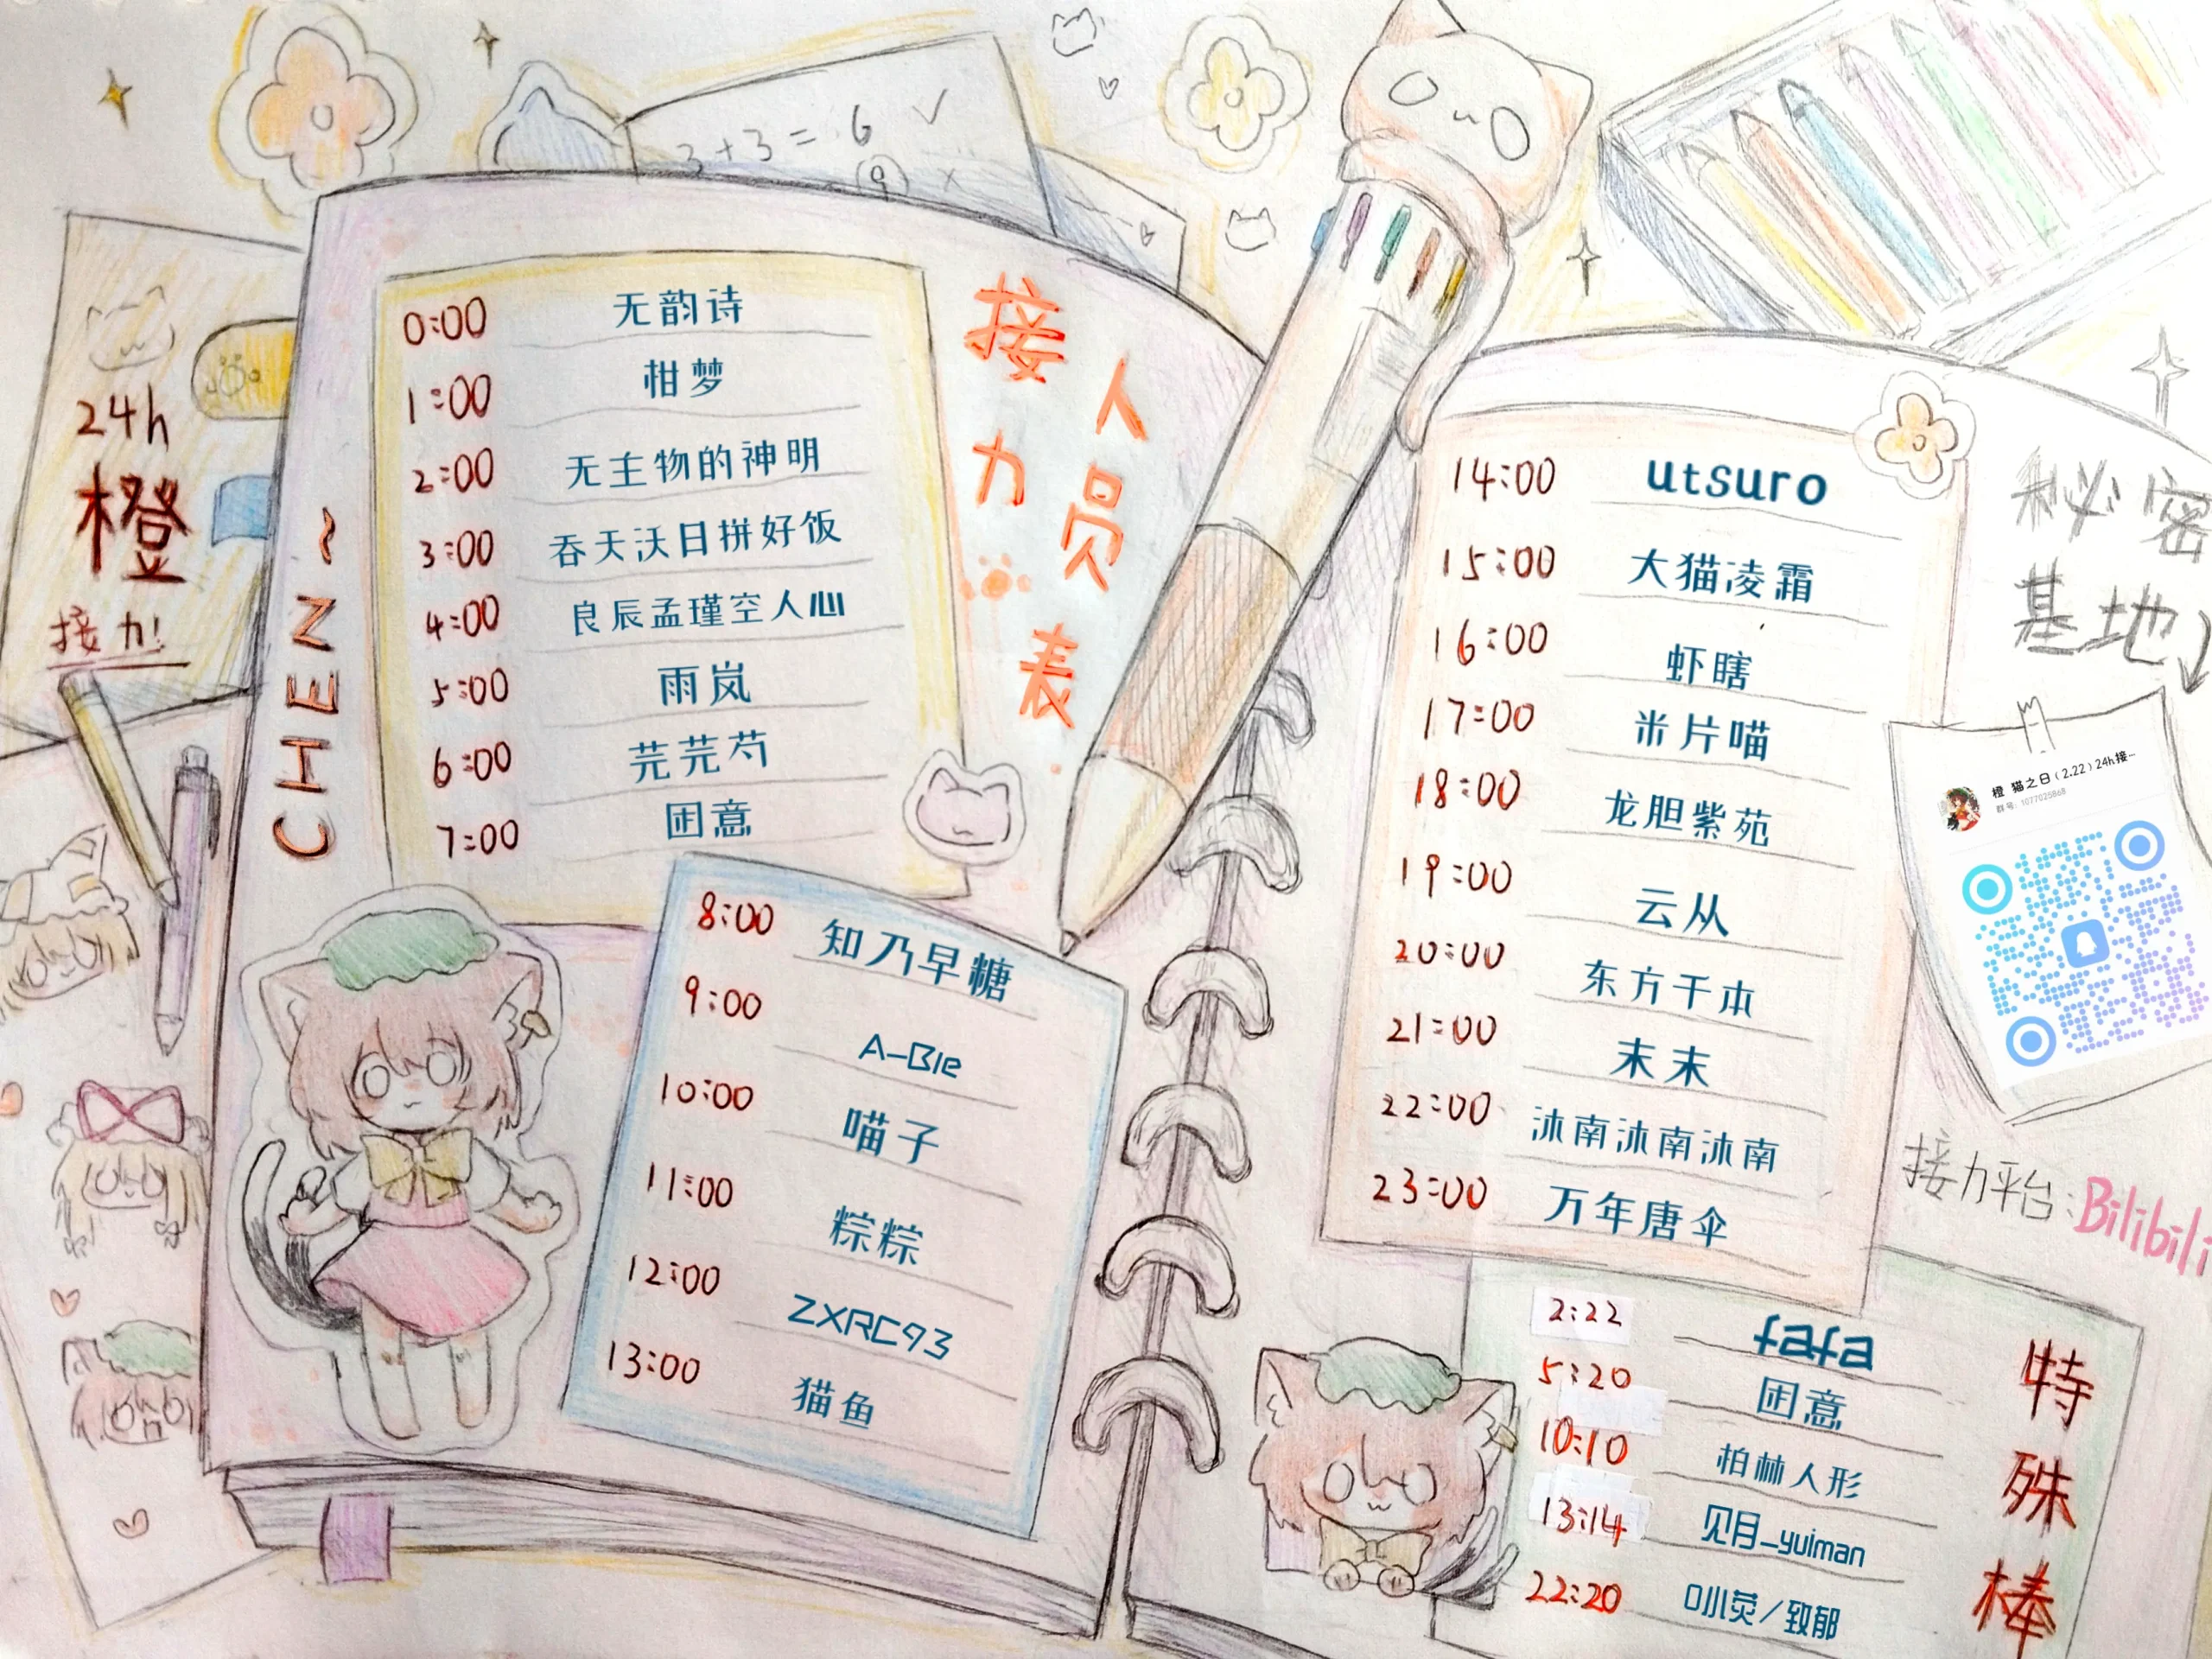 3+3=6 ✓
9 ×
24h
橙
接力!
CHEN~
接力
人员表
0:00 无韵诗
1:00 柑梦
2:00 无主物的神明
3:00 吞天沃日拼好饭
4:00 良辰孟瑾空人心
5:00 雨岚
6:00 芫芫芍
7:00 困意
8:00 知乃早糖
9:00 A-Ble
10:00 喵子
11:00 粽粽
12:00 ZXRC93
13:00 猫鱼
14:00 utsuro
15:00 大猫凌霜
16:00 虾瞎
17:00 米片喵
18:00 龙胆紫苑
19:00 云从
20:00 东方干本
21:00 末末
22:00 沐南沐南沐南
23:00 万年唐伞
秘密
基地↓
橙 猫之日(2.22)24h接…
群号: 1077025868
接力平台:Bilibili
特殊棒
2:22 fafa
5:20 困意
10:10 柏林人形
13:14 见月_yuiman
22:20 0小荧/致郁